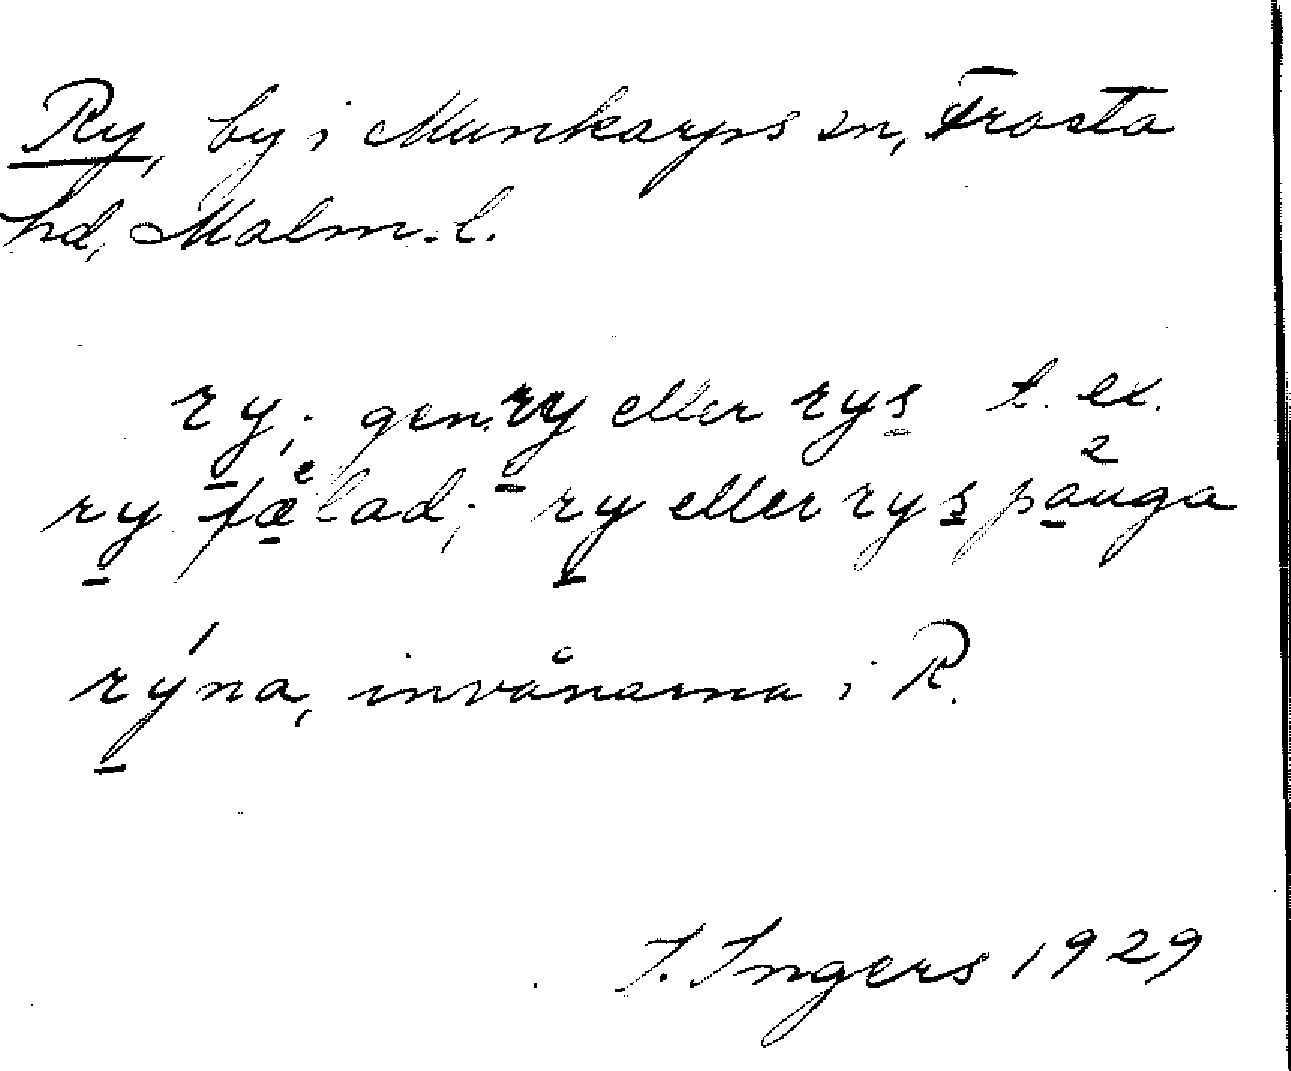 Ry, by i Munkarps sn, Frosta
hd, Malm. l.
ry; gen. ry eller rys t. ex.
ry fælad; ry eller rys påuga
rýna, invånarna i R.
I. Ingers 1929